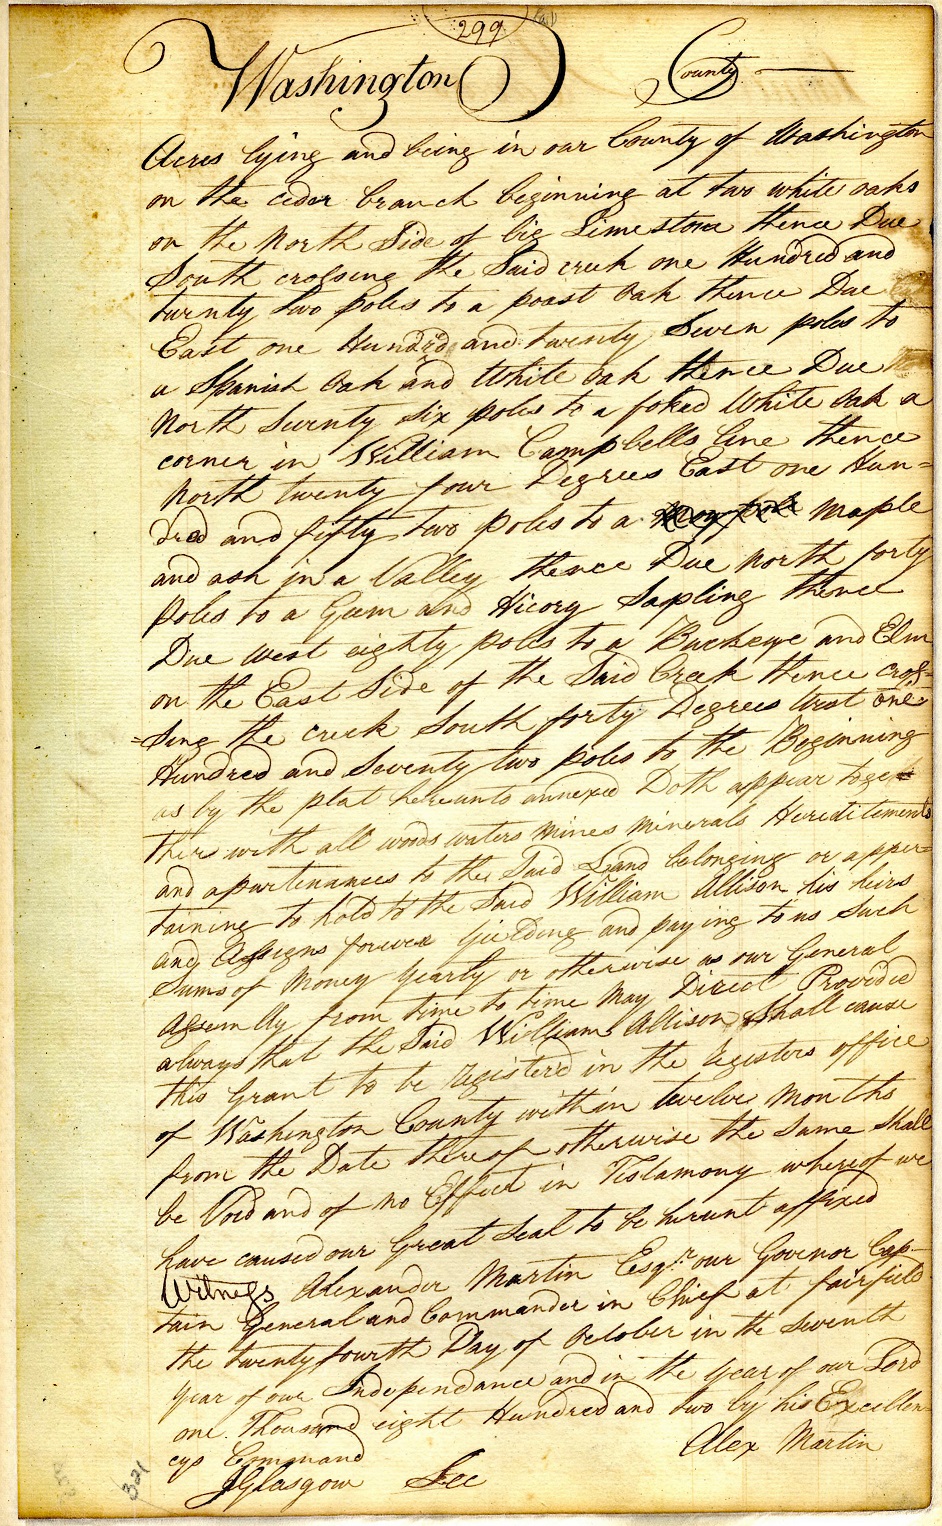 299
Washington County
Acres lying and being in our County of Washington
on the ceder branch beginning at two white oaks
on the North Side of big Limestone thence Due
South crossing the Said creek one Hundred and
twenty two poles to a poast oak thence Due
East one Hundred and twenty Seven poles to
a Spanish Oak and White oak thence Due
North Seventy six poles to a foked White oak a
corner in William Campbells line thence
North twenty four Degrees East one Hun=
dred and fifty two poles to a maple
and ash in a Valley thence Due North forty
poles to a Gum and Hicory Sapling thence
Due west eighty poles to a Buckeye and Elm
on the East Side of the Said Creek thence cros=
=sing the creek South forty Degrees West one
Hundred and Seventy two poles to the Beginning
as by the plat hereunto annexed Doth appear toge
ther with all woods waters mines minerals Hereditements
and apurtenances to the Said Land belonging or apper=
taining to hold to the Said William Allison his heirs
and Assigns forever Yielding and paying to us Such
Sums of Money yearly or otherwise as our General
Assembly from time to time May Direct Provided
always that the Said William Allison Shall cause
this Grant to be registered in the registers office
of Washington County within twelve Months
from the Date thereof otherwise the Same Shall
be Void and of no Effect in Testamony whereof we
have caused our Great Seal to be hereunt affixed
Witness Alexander Martin Esqr. our Govenor Cap-
tain General and Commander in Chief at fairfield
the twenty fourth Day of October in the Seventh
year of our Independance and in the year of our Lord
one Thousand eight Hundred and two by his Excellen
cys Command Alex Martin
JGlasgow Sec
321